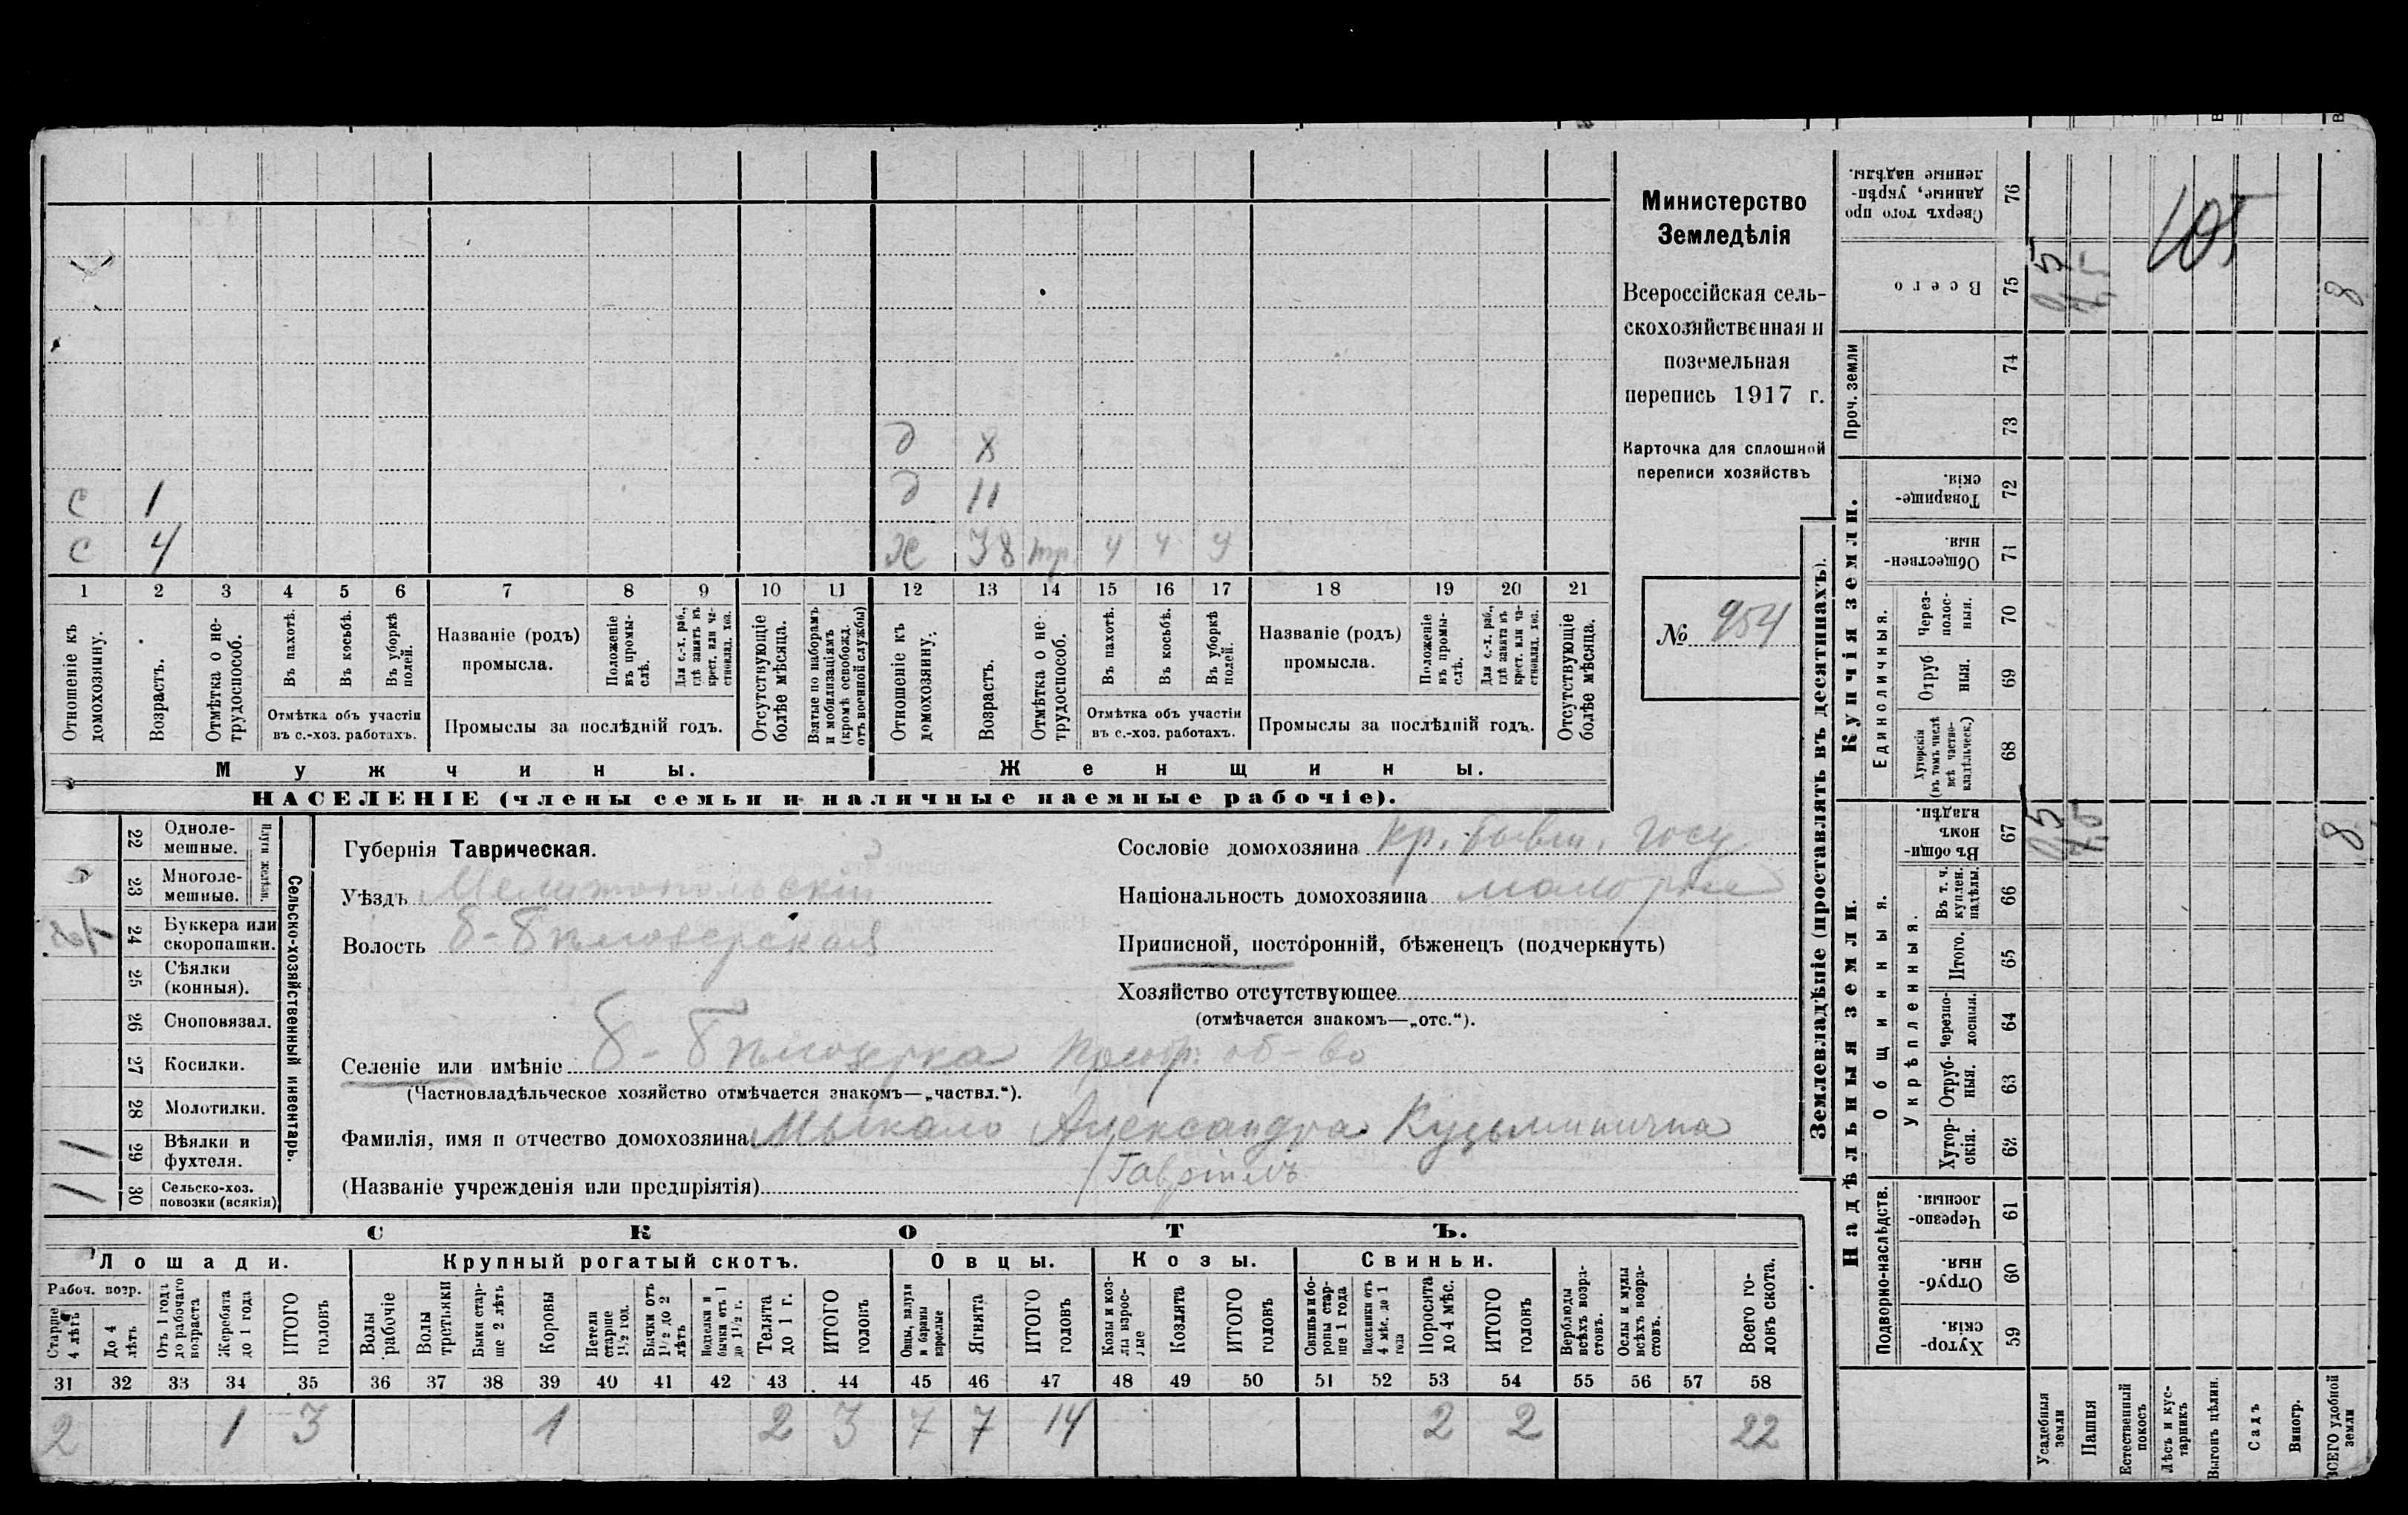 Министерство
Земледѣлія
Всероссійская сель-
скохозяйственная и
поземельная
перепись 1917 г.
Карточка для сплошной
переписи хозяйствъ
№ 954
д 8
с 1 д 11
с 4 ж 38 тр 4 4 4
1 2 3 4 5 6 7 8 9 10 11 12 13 14 15 16 17 18 19 20 21
Отношеніе къ домохозяину.
Возрастъ.
Отмѣтка о не-трудоспособ.
Въ пахотѣ.
Въ косьбѣ.
Въ уборкѣ полей.
Отмѣтка объ участіи
въ с.-хоз. работахъ.
Названіе (родъ)
промысла.
Положеніе въ промы-слѣ.
Для с.-х. раб., гдѣ занятъ въ крест. или ча-стновлад. хоз.
Промыслы за послѣдній годъ.
Отсутствующіе болѣе мѣсяца.
Взятые по наборамъ и мобилизаціямъ (кромѣ освобожд. отъ военной службы)
Отношеніе къ домохозяину.
Возрастъ.
Отмѣтка о не-трудоспособ.
Въ пахотѣ.
Въ косьбѣ.
Въ уборкѣ полей.
Отмѣтка объ участіи
въ с.-хоз. работахъ.
Названіе (родъ)
промысла.
Положеніе въ промы-слѣ.
Для с.-х. раб., гдѣ занята въ крест. или ча-стновлад. хоз.
Промыслы за послѣдній годъ.
Отсутствующіе болѣе мѣсяца.
Мужчины. Женщины.
НАСЕЛЕНІЕ (члены семьи и наличные наемные рабочіе).
Сельско-хозяйственный инвентарь.
Плуги желѣзн.
22 Одноле-мешные.
23 Многоле-мешные.
24 Буккера или скоропашки.
25 Сѣялки (конныя).
26 Сноповязал.
27 Косилки.
28 Молотилки.
29 Вѣялки и фухтеля. 1
30 Сельско-хоз. повозки (всякія) 1
Губернія Таврическая.
Уѣздъ Мелитопольскій
Волость Б-Бѣлозерская
Сословіе домохозяина кр. бывш. госу
Національность домохозяина малорос
Приписной, посторонній, бѣженецъ (подчеркнуть)
Хозяйство отсутствующее
(отмѣчается знакомъ—„отс.“).
Селеніе или имѣніе Б-Бѣлозерка об-во
(Частновладѣльческое хозяйство отмѣчается знакомъ—„частвл.“).
Фамилія, имя и отчество домохозяина Мыкало Александра Кузьминична
Гавріилъ
(Названіе учрежденія или предпріятія)
СКОТЪ.
Лошади. Крупный рогатый скотъ. Овцы. Козы. Свиньи.
Рабоч. возр.
Старше 4 лѣтъ
До 4 лѣтъ
Отъ 1 года до рабочаго возраста
Жеребята до 1 года
ИТОГО головъ
Волы рабочіе
Волы третьяки
Быки стар-ше 2 лѣтъ
Коровы
Нетели старше 1½ год.
Бычки отъ 1½ до 2 лѣтъ
Подтелки и бычки отъ 1 до 1½ г.
Телята до 1 г.
ИТОГО головъ
Овцы, валухи и бараны взрослые
Ягнята
ИТОГО головъ
Козы и коз-лы взрос-лые
Козлята
ИТОГО головъ
Свиньи и бо-ровы стар-ше 1 года
Подсвинки отъ 4 мѣс. до 1 года
Поросята до 4 мѣс.
ИТОГО головъ
Верблюды всѣхъ возра-стовъ.
Ослы и мулы всѣхъ возра-стовъ.
Всего го-ловъ скота.
31 32 33 34 35 36 37 38 39 40 41 42 43 44 45 46 47 48 49 50 51 52 53 54 55 56 57 58
2 1 3 1 2 3 7 7 14 2 2 22
Землевладѣніе (проставлять въ десятинахъ).
Надѣльныя земли.
Купчія земли.
Проч. земли
Подворно-наслѣдств.
Общинныя.
Укрѣпленныя.
Единоличныя.
Сверхъ того про данные, укрѣп-ленные надѣлы. 76
Всего 75
74
73
Товарище-скія. 72
Обществен-ныя. 71
Через-полос-ныя. 70
Отруб ныя. 69
Хуторскія (въ томъ числѣ всѣ частно-владѣльческ.) 68
Въ общи-номъ владѣн. 67
Въ т. ч. куплен. надѣлы. 66
Итого. 65
Черезпо-лосныя. 64
Отруб-ныя. 63
Хутор-скія. 62
Черезпо-лосныя. 61
Отруб-ныя. 60
Хутор-скія. 59
Усадебныя земли
Пашня
Естественный покосъ
Лѣсъ и кус-тарникъ
Выгонъ цѣлин.
Садъ
Виногр.
ВСЕГО удобной земли
105
8
8